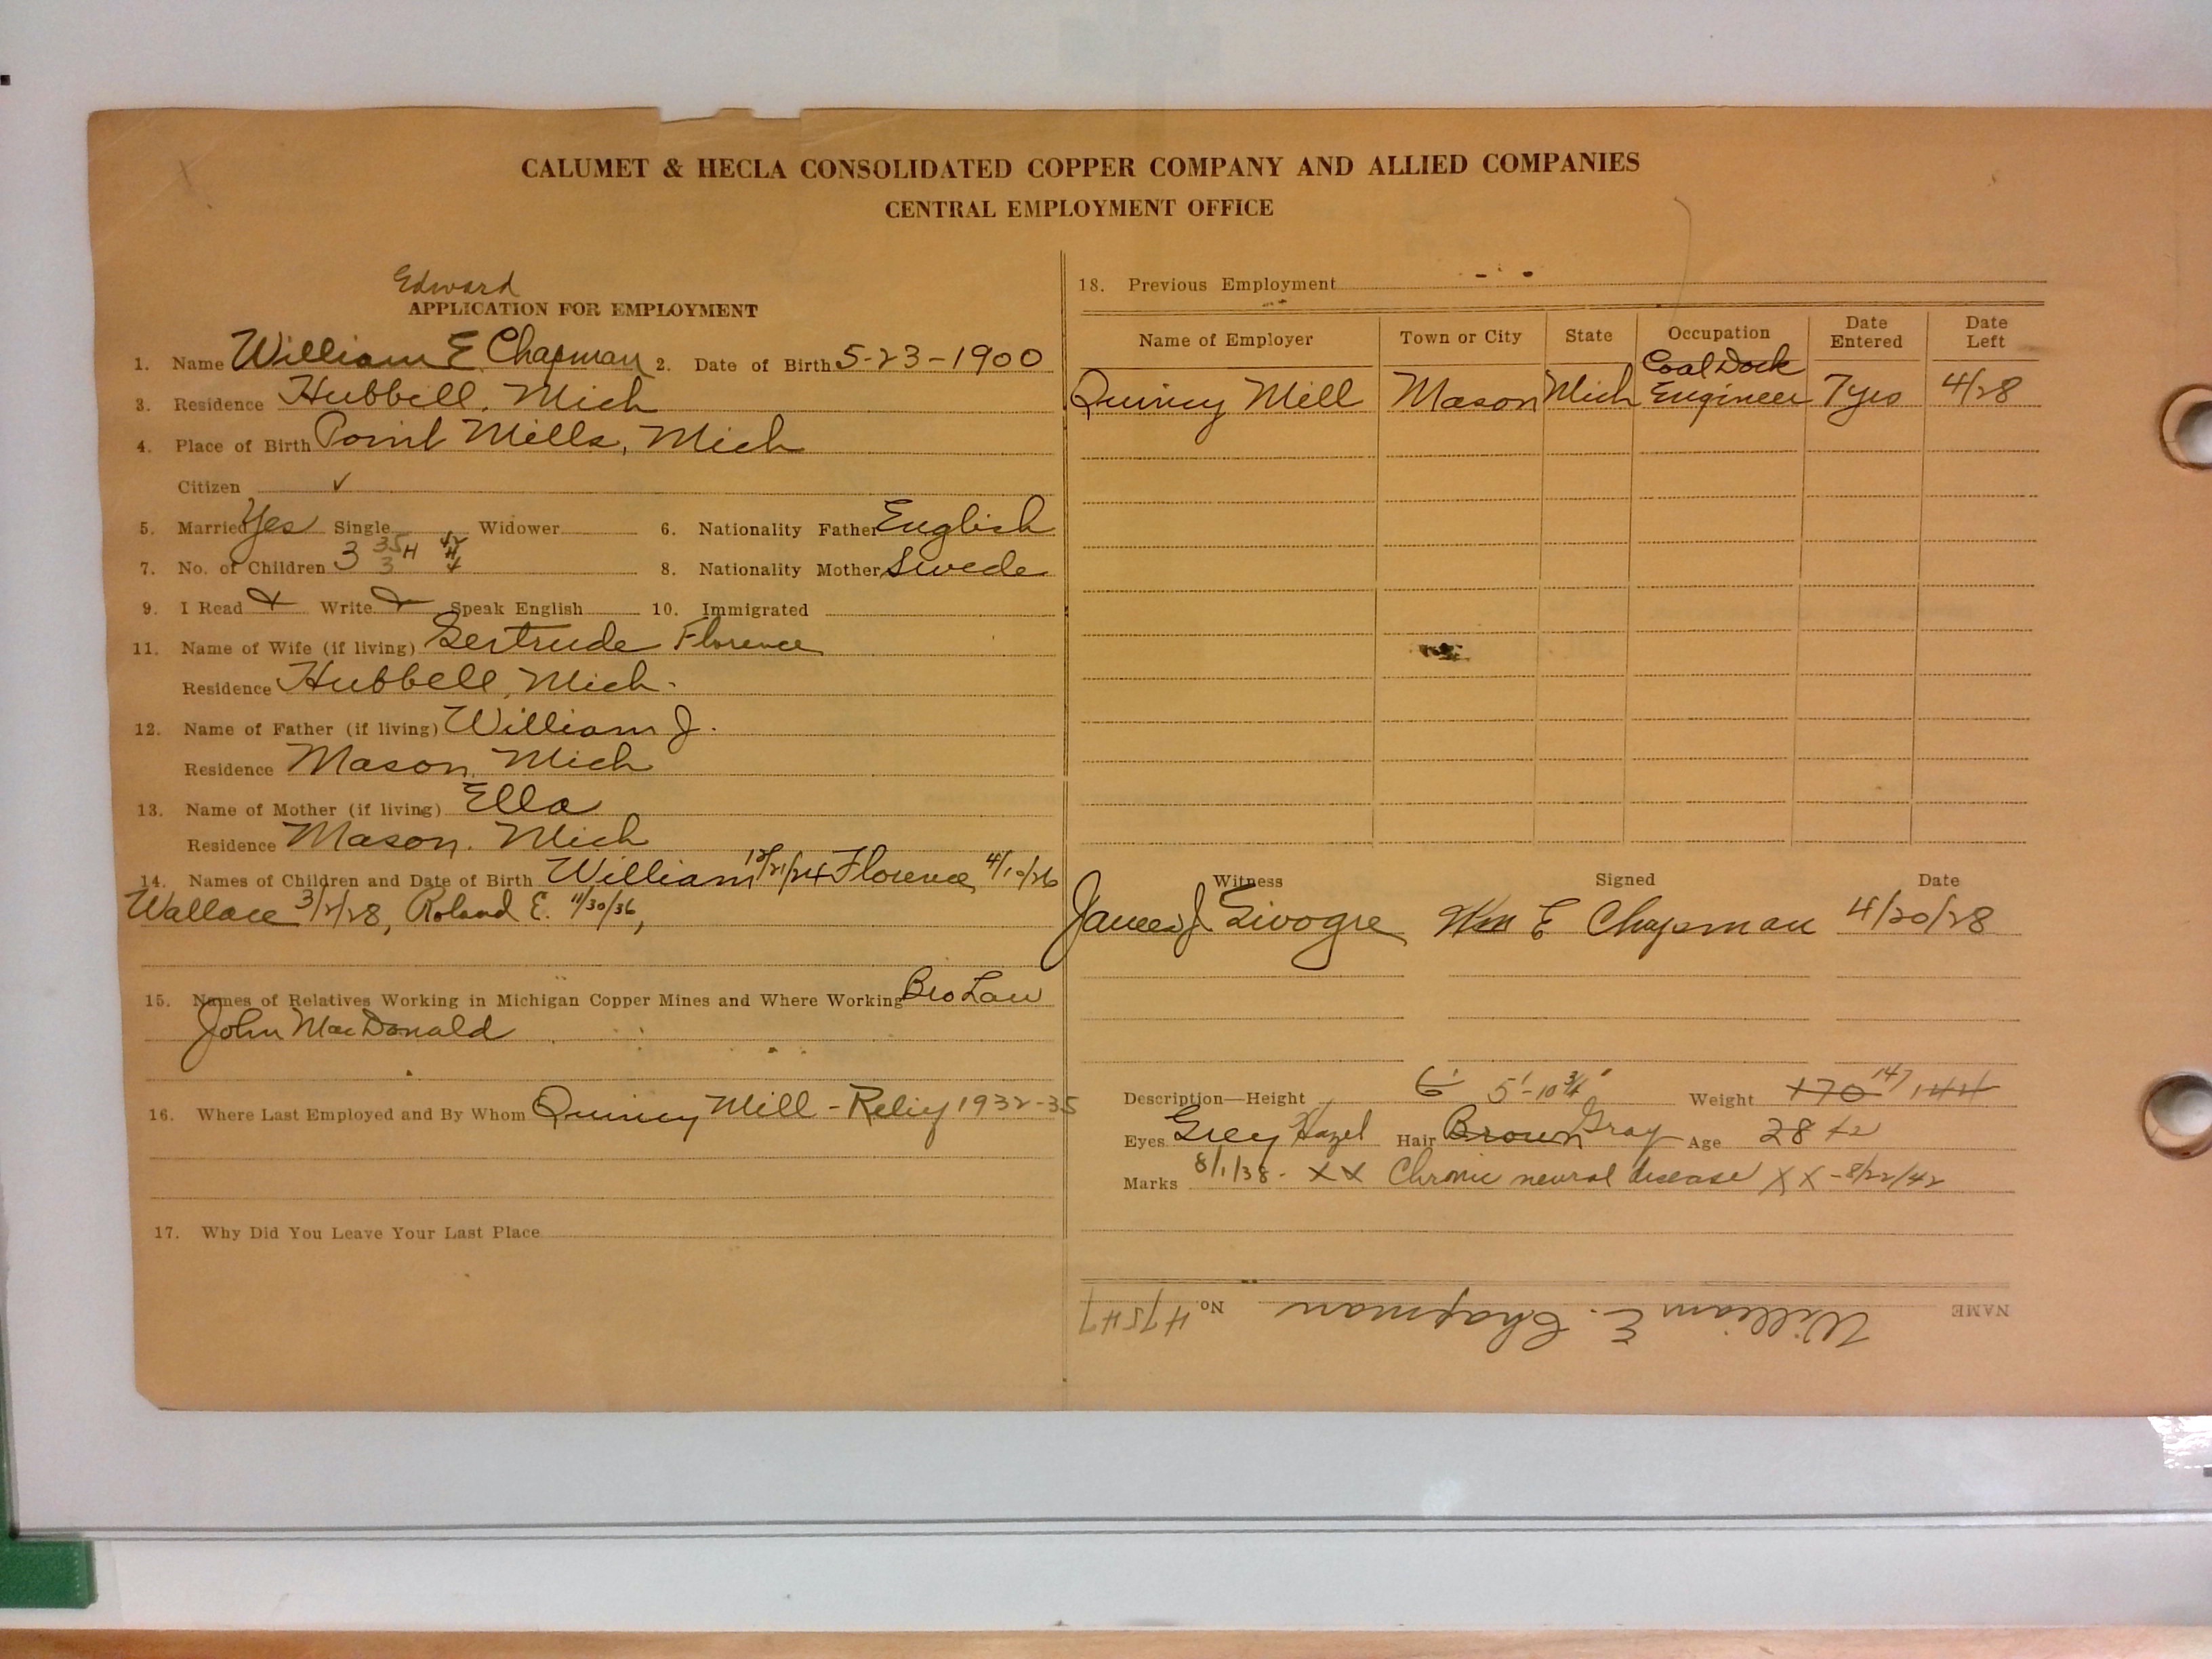 CALUMET & HECLA CONSOLIDATED COPPER COMPANY AND ALLIED COMPANIES
CENTRAL EMPLOYMENT OFFICE
Edward
APPLICATION FOR EMPLOYMENT
1. Name William E. Chapman 2. Date of Birth 5-23-1900
3. Residence Hubbell, Mich
4. Place of Birth Point Mills, Mich
Citizen ✓
5. Married Yes Single Widower 6. Nationality Father English
7. No. of Children 3 35 H 3 42 H 4 8. Nationality Mother Swede
9. I Read Write Speak English 10. Immigrated
11. Name of Wife (if living) Gertrude Florence
Residence Hubbell, Mich.
12. Name of Father (if living) William J.
Residence Mason, Mich
13. Name of Mother (if living) Ella
Residence Mason. Mich
14. Names of Children and Date of Birth William 12/21/24 Florence 4/10/26
Wallace 3/2/28, Roland E. 11/30/36,
15. Names of Relatives Working in Michigan Copper Mines and Where Working Bro Law
John MacDonald
16. Where Last Employed and By Whom Quincy Mill - Relief 1932-35
17. Why Did You Leave Your Last Place
18. Previous Employment
Name of Employer Town or City State Occupation Date Entered Date Left
Coal Dock
Quincy Mill Mason Mich Engineer 7 yrs 4/28
Witness Signed Date
James J. Wm E Chapman 4/20/28
Description—Height 6' 5'-10 3/4" Weight 170 147 144
Eyes Grey Hazel Hair Brown Gray Age 28 42
Marks 8/1/38. XX Chronic neural disease XX - 8/22/42
NAME William E. Chapman No. 47547